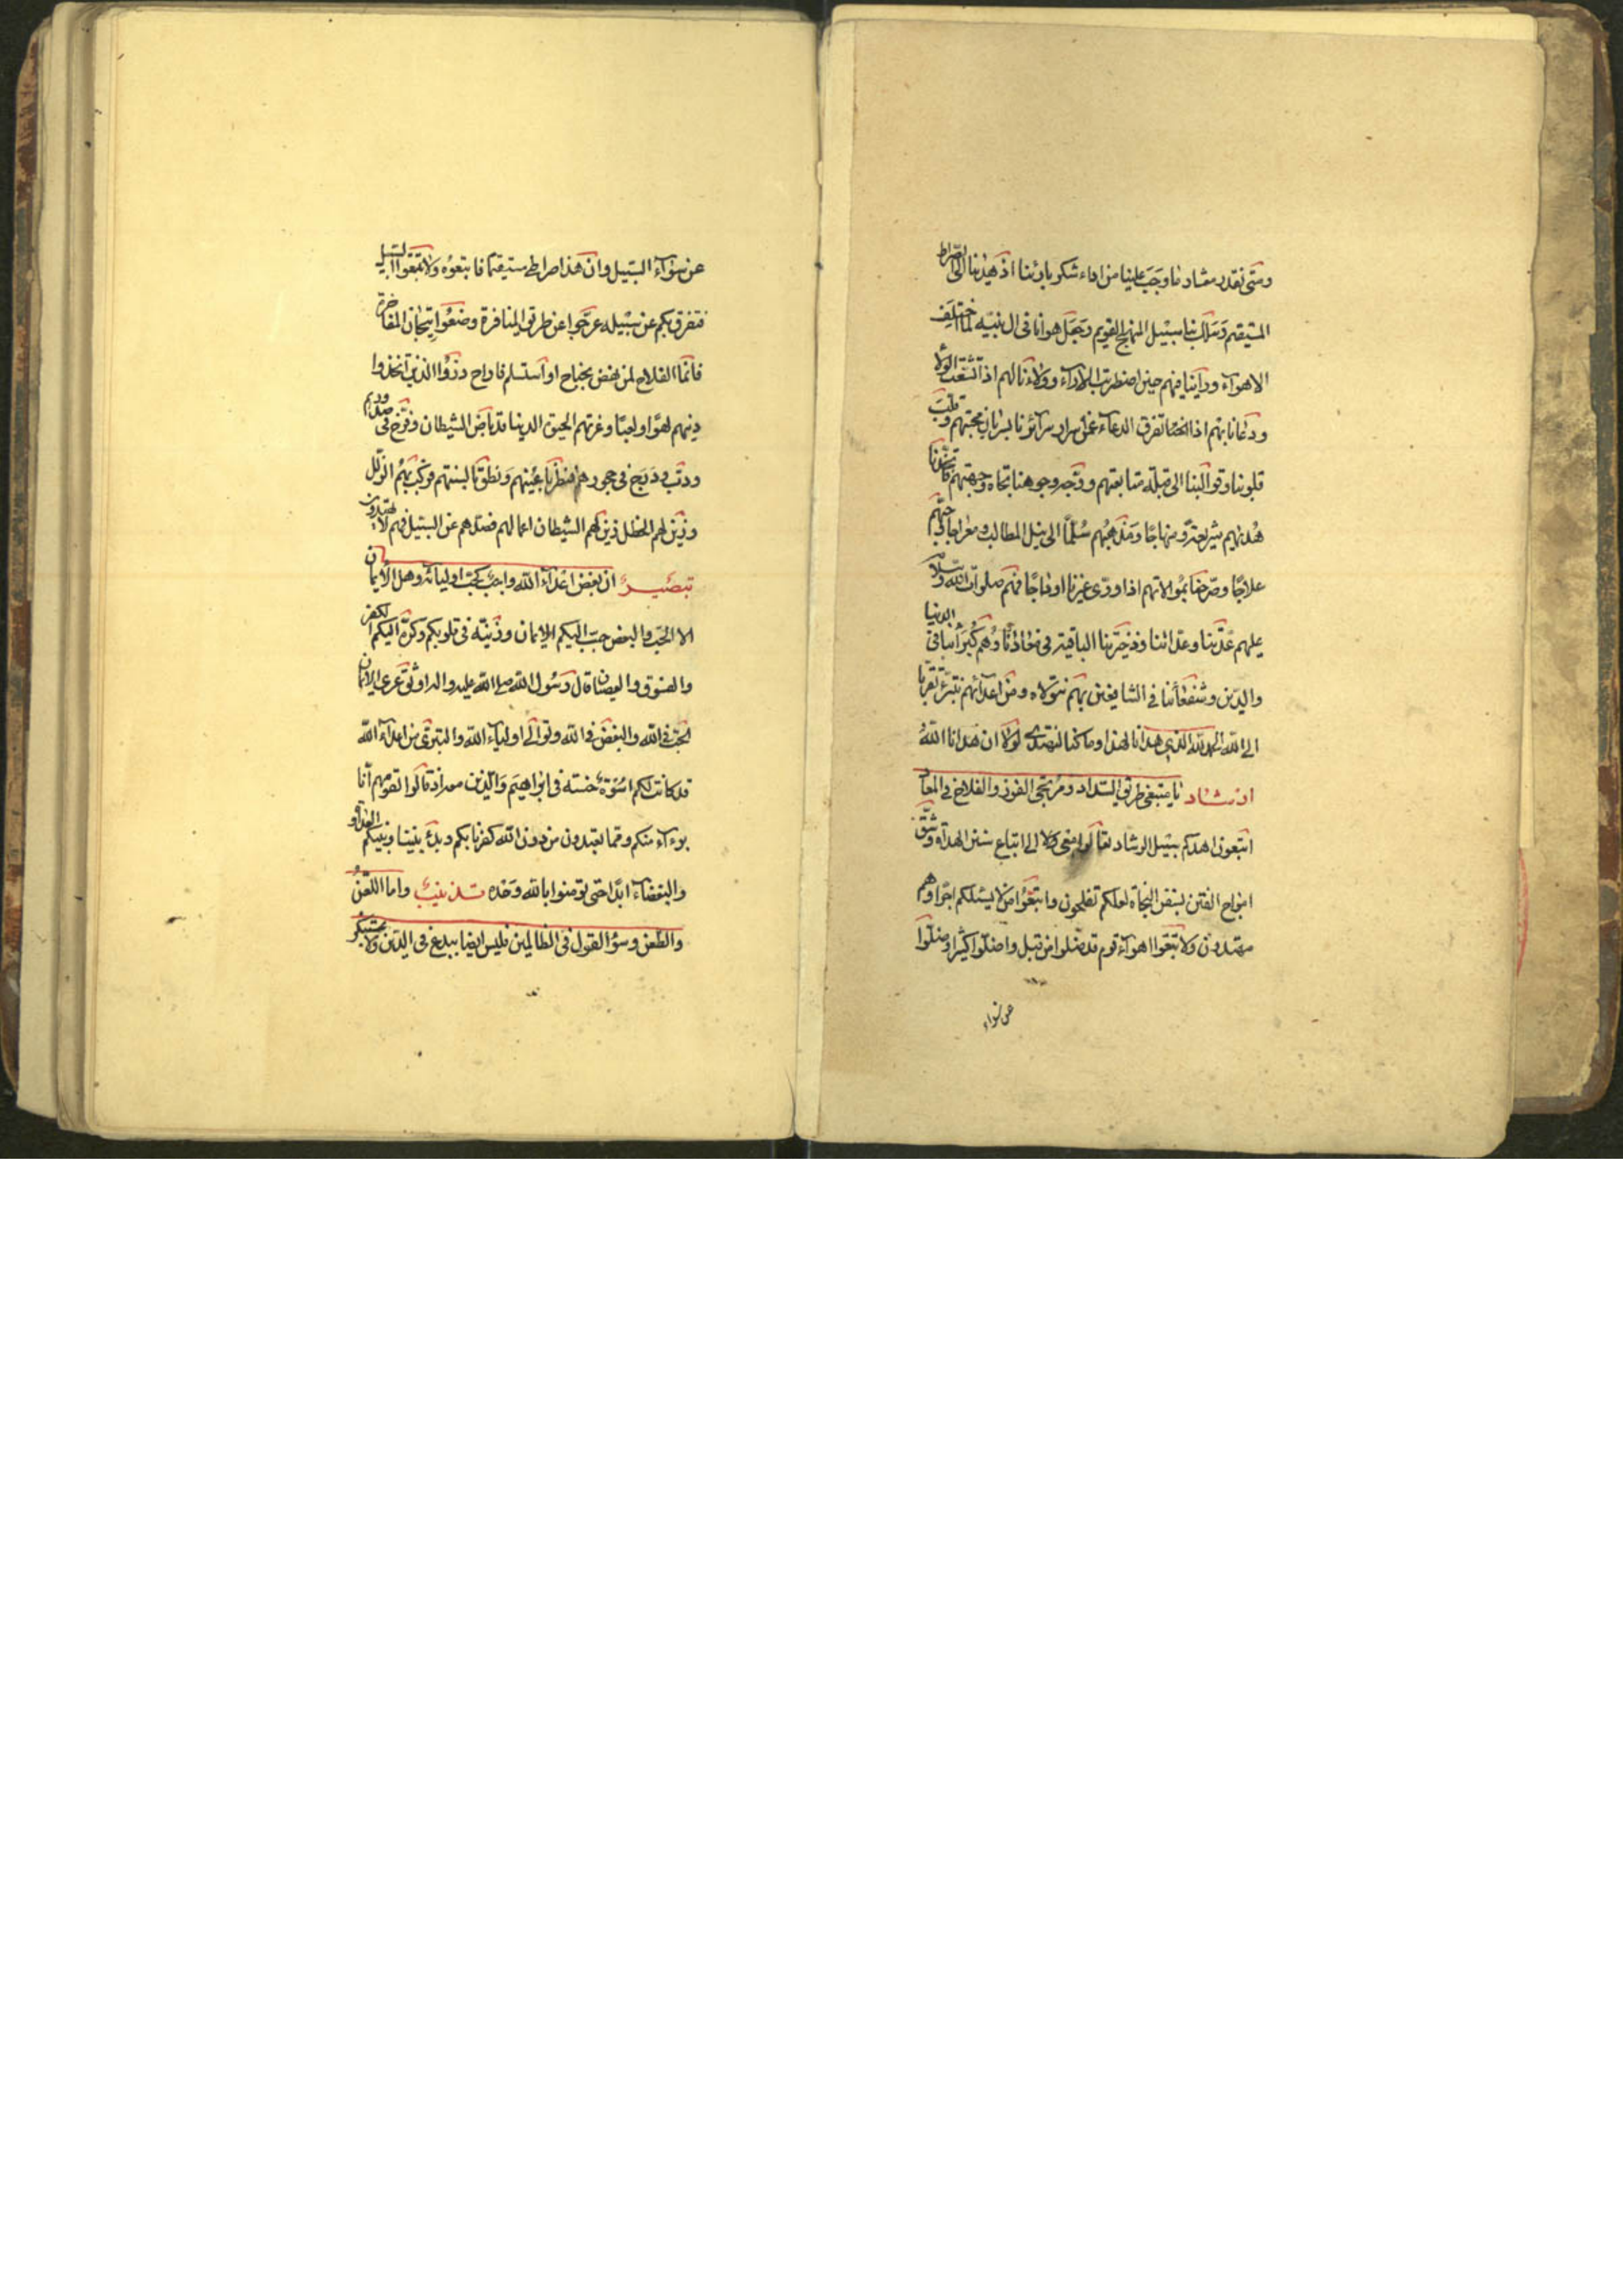 ومتى نقدر معشار ما وجب علينا من اداء شكر بارئنا اذ هدينا الى الصراط
المستقيم وسلك بنا سبيل المنهج القويم وجعل هوانا فى ال نبيه لما اختلف
الاهواء وراينا فيهم حين اضطربت الاراء وولاءنا لهم اذا تشعب الولا
ودعانا بهم اذا تفرق الدعاء عمر اسرار سرآئرنا بسريان محبتهم وقلب
قلوبنا وقوالبنا الى قبلة متابعتهم ووجه وجوهنا تجاه وجهتهم فاتخذنا
هداهم شرعة ومنهاجا ومذهبهم سلما الى نيل المطالب ومعراجا وحبهم
علاجا وصرحنا بموالاتهم اذا ورى غيرنا او داجا فهم صلوات الله وسلام
عليهم عدتنا وعدائنا وذخيرتنا الباقية فى معادنا وهم كبرآئنا فى الدنيا
والدين وشفعائنا فى الشافعين بهم نتولاه ومن اعدائهم نتبرء تقربا
الى الله الحمد لله الذى هدانا لهذا وما كنا لنهتدى لولا ان هدانا الله
ارشاد يا مبتغى طريق السداد ومرتجى الفوز والفلاح فى المعاد
اتبعونى اهدكم سبيل الرشاد تعالوا معى الى اتباع سنن الهداة وشق
امواج الفتن بسفن النجاة لعلكم تفلحون واتبعوا من لا يسئلكم اجرا وهم
مهتدون ولا تتبعوا اهواء قوم قد ضلوا من قبل واضلوا كثيرا وضلوا
عن سواء
عن سواء السبيل وان هذا صراطى مستقيما فاتبعوه ولا تتبعوا السبل
فتفرق بكم عن سبيله عرجوا عن طريق المنافرة وضعوا تيجان المفاخرة
فانما الفلاح لمن نهض بجناح او استسلم فاراح وذروا الذين اتخذوا
دينهم لهوا ولعبا وغرتهم الحيوة الدنيا قد باض الشيطان وفرخ فى صدورهم
ودب ودرج فى حجورهم فنظر باعينهم ونطق بالسنتهم فركب بهم الزلل
وزين لهم الخطل زين لهم الشيطان اعمالهم فصدهم عن السبيل فهم لا يهتدون
تبصير ان بغض اعداء الله واجب كحب اوليائه وهل الايمان
الا الحب والبغض حبب اليكم الايمان وزينه فى قلوبكم وكره اليكم الكفر
والفسوق والعصيان قال رسول الله صلى الله عليه واله اوثق عرى الايمان
الحب فى الله والبغض فى الله وتوالى اولياء الله والتبرى من اعداء الله
قد كانت لكم اسوة حسنة فى ابراهيم والذين معه اذ قالوا لقومهم انا
برءاء منكم ومما تعبدون من دون الله كفرنا بكم وبدء بيننا وبينكم العداوة
والبغضاء ابدا حتى تومنوا بالله وحده تذنيب واما اللعن
والطعن وسؤ القول فى الظالمين فليس ايضا ببدع فى الدين ولا بمستنكر